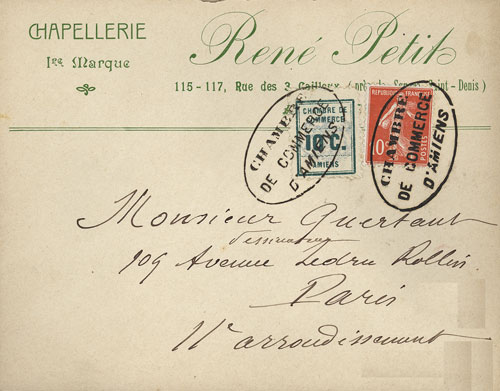 CHAPELLERIE
1re Marque
René Petit
115-117, Rue des 3 Cailloux (près de Saint-Denis)
CHAMBRE DE COMMERCE
10 C.
AMIENS
REPUBLIQUE FRANÇAISE
10c
POSTES
CHAMBRE
DE COMMERCE
D'AMIENS
CHAMBRE
DE COMMERCE
D'AMIENS
Monsieur Quertant
dessinateur
109 Avenue Ledru Rollin
Paris
11e arrondissement